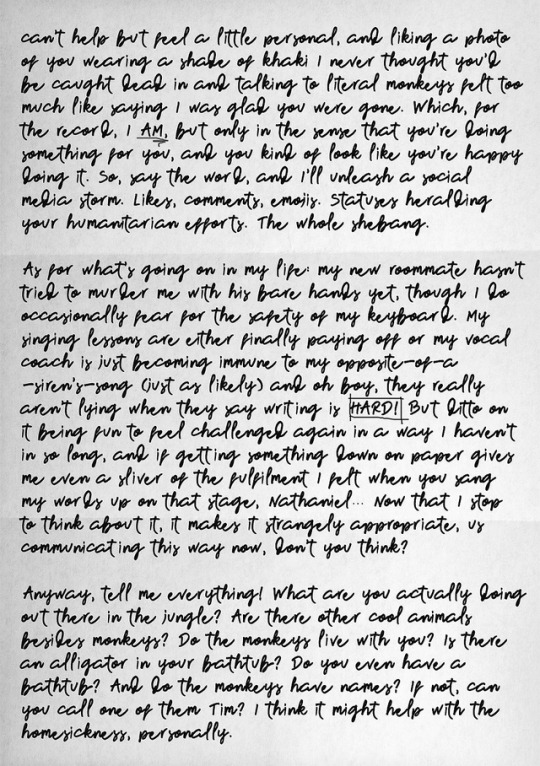 can't help but feel a little personal, and liking a photo
of you wearing a shade of khaki I never thought you'd
be caught dead in and talking to literal monkeys felt too
much like saying I was glad you were gone. Which, for
the record, I AM, but only in the sense that you're doing
something for you, and you kind of look like you're happy
doing it. So, say the word, and I'll unleash a social
media storm. Likes, comments, emojis. Statuses heralding
your humanitarian efforts. The whole shebang.
As for what's going on in my life: my new roommate hasn't
tried to murder me with his bare hands yet, though I do
occasionally fear for the safety of my keyboard. My
singing lessons are either finally paying off or my vocal
coach is just becoming immune to my opposite-of-a
-siren's-song (just as likely) and oh boy, they really
aren't lying when they say writing is HARD! But ditto on
it being fun to feel challenged again in a way I haven't
in so long, and if getting something down on paper gives
me even a sliver of the fulfilment I felt when you sang
my words up on that stage, Nathaniel... Now that I stop
to think about it, it makes it strangely appropriate, us
communicating this way now, don't you think?
Anyway, tell me everything! What are you actually doing
out there in the jungle? Are there other cool animals
besides monkeys? Do the monkeys live with you? Is there
an alligator in your bathtub? Do you even have a
bathtub? And do the monkeys have names? If not, can
you call one of them Tim? I think it might help with the
homesickness, personally.